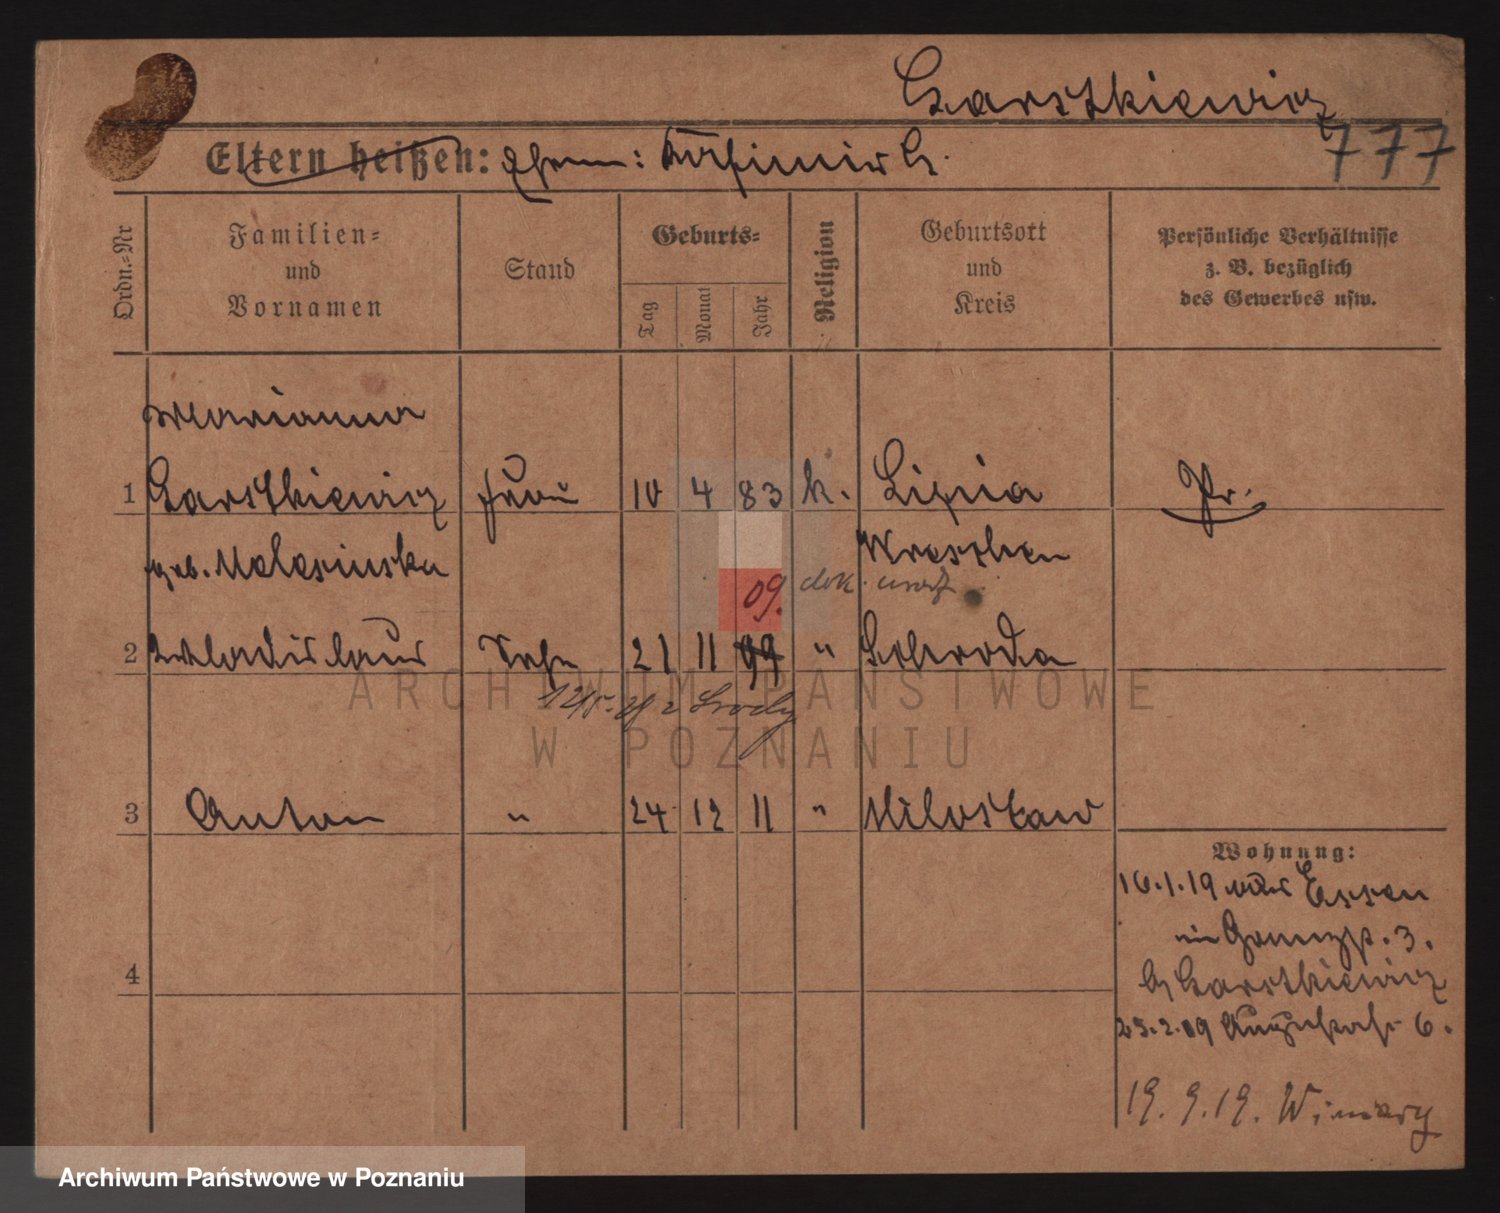 Garstkiewicz
777
Eltern heißen: Ehem: Kasimir G.
Ordn.-Nr
Familien-
und
Vornamen
Stand
Geburts-
Tag
Monat
Jahr
Religion
Geburtsort
und
Kreis
Persönliche Verhältnisse
z. B. bezüglich
des Gewerbes usw.
Marianna
1 Garstkiewicz Frau 10 4 83 k. Lipia Pr.
geb. Malasinska Wreschen
09. dok. urodz
2 Wladislaus Sohn 21 11 99 " Schroda
Środy
3 Anton " 24 12 11 " Miloslaw
4
Wohnung:
16.1.19 aus Essen
3.
b/ Garstkiewicz
25.2.09 6.
19. 9. 19. Winiary
ARCHIWUM PAŃSTWOWE
W POZNANIU
Archiwum Państwowe w Poznaniu